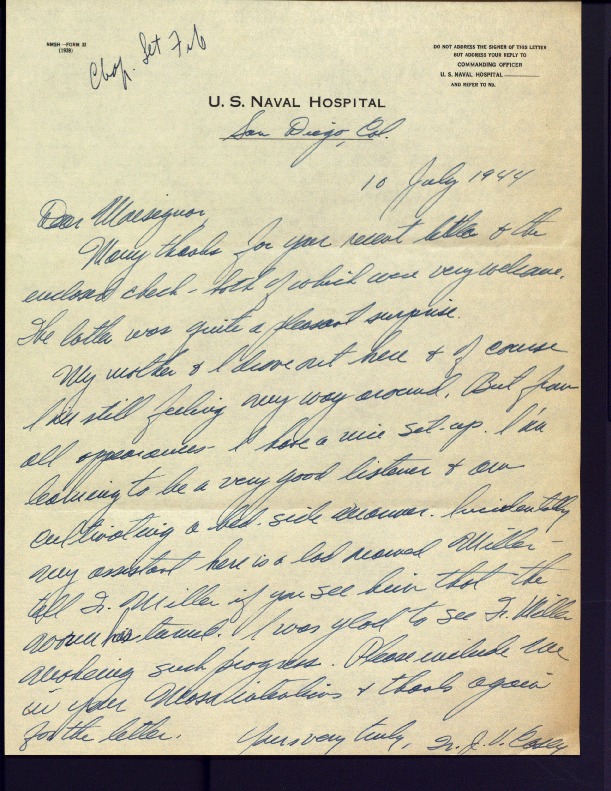 NMSH-FORM 32
(1938)
Chap. Let Feb
DO NOT ADDRESS THE SIGNER OF THIS LETTER
BUT ADDRESS YOUR REPLY TO
COMMANDING OFFICER
U. S. NAVAL HOSPITAL
AND REFER TO NO.
U. S. NAVAL HOSPITAL
San Diego, Cal.
10 July 1944
Dear Monsignor,
Many thanks for your recent letter & the
enclosed check - both of which were very welcome.
The latter was quite a pleasant surprise.
My mother & I drove out here & of course
I'm still feeling my way around. But from
all appearances - I have a nice set-up. I'm
learning to be a very good listener & am
cultivating a bed-side manner. Incidentally
my assistant here is a lad named Miller -
tell Fr. Miller if you see him that the
his I was glad to see Fr. Miller
making such progress. Please include me
in your Mass intentions & thanks again
for the letter.
Yours very truly, Fr. J. V. Casey